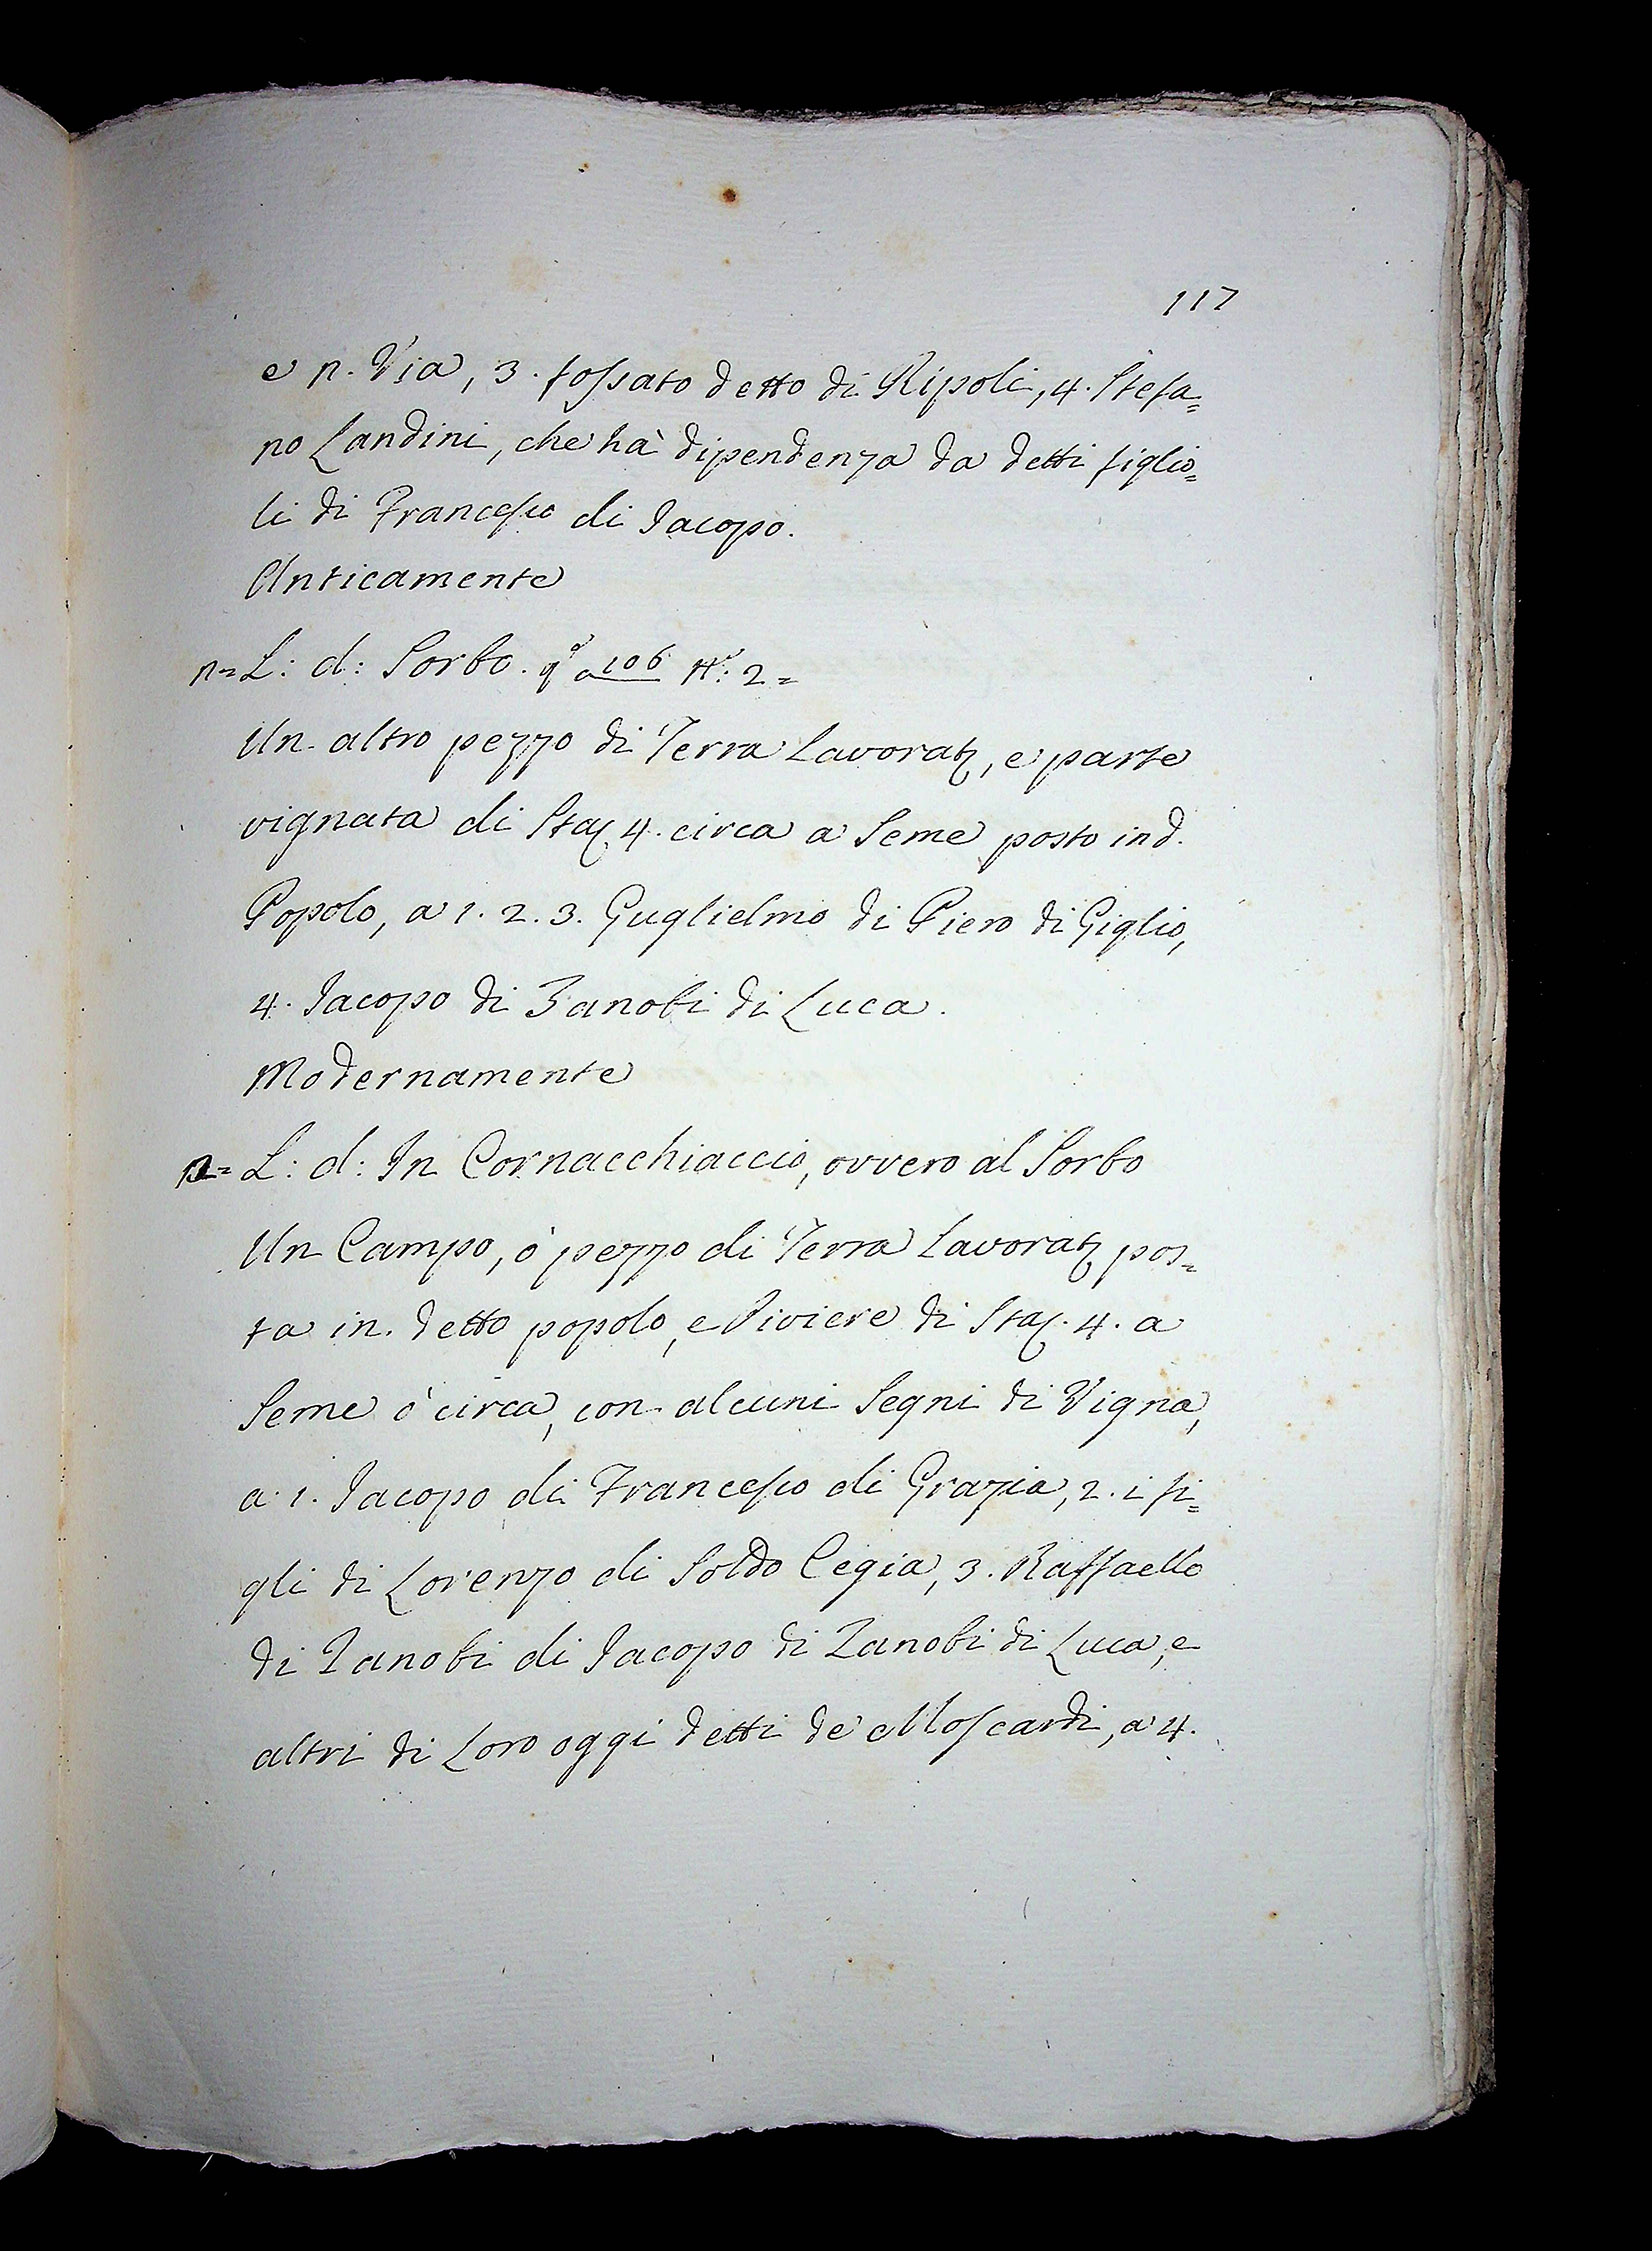 117
e n. Via, 3. fossato detto di Ripoli, 4. Stefa=
no Landini, che hà dipendenza da detti figlio=
li di Francesco di Jacopo.
Anticamente
n= L: d: Sorbo. qº a 106 Nº: 2=
Un altro pezzo di Terra Lavorat, e parte
vignata di Sta 4. circa a Seme posto in d.
Popolo, a 1. 2. 3. Guglielmo di Piero di Giglio,
4. Jacopo di Zanobi di Luca.
Modernamente
n= L: d: In Cornacchiaccio, ovvero al Sorbo
Un Campo, ò pezzo di Terra Lavorat pos=
ta in detto popolo, e Piviere di Sta. 4. a
Seme ò circa, con alcuni Segni di Vigna,
a 1. Jacopo di Francesco di Grazia, 2. i fi=
gli di Lorenzo di Soldo Cegia, 3. Raffaello
di Zanobi di Jacopo di Zanobi di Luca, e
altri di Loro oggi detti de Moscardi, a 4.